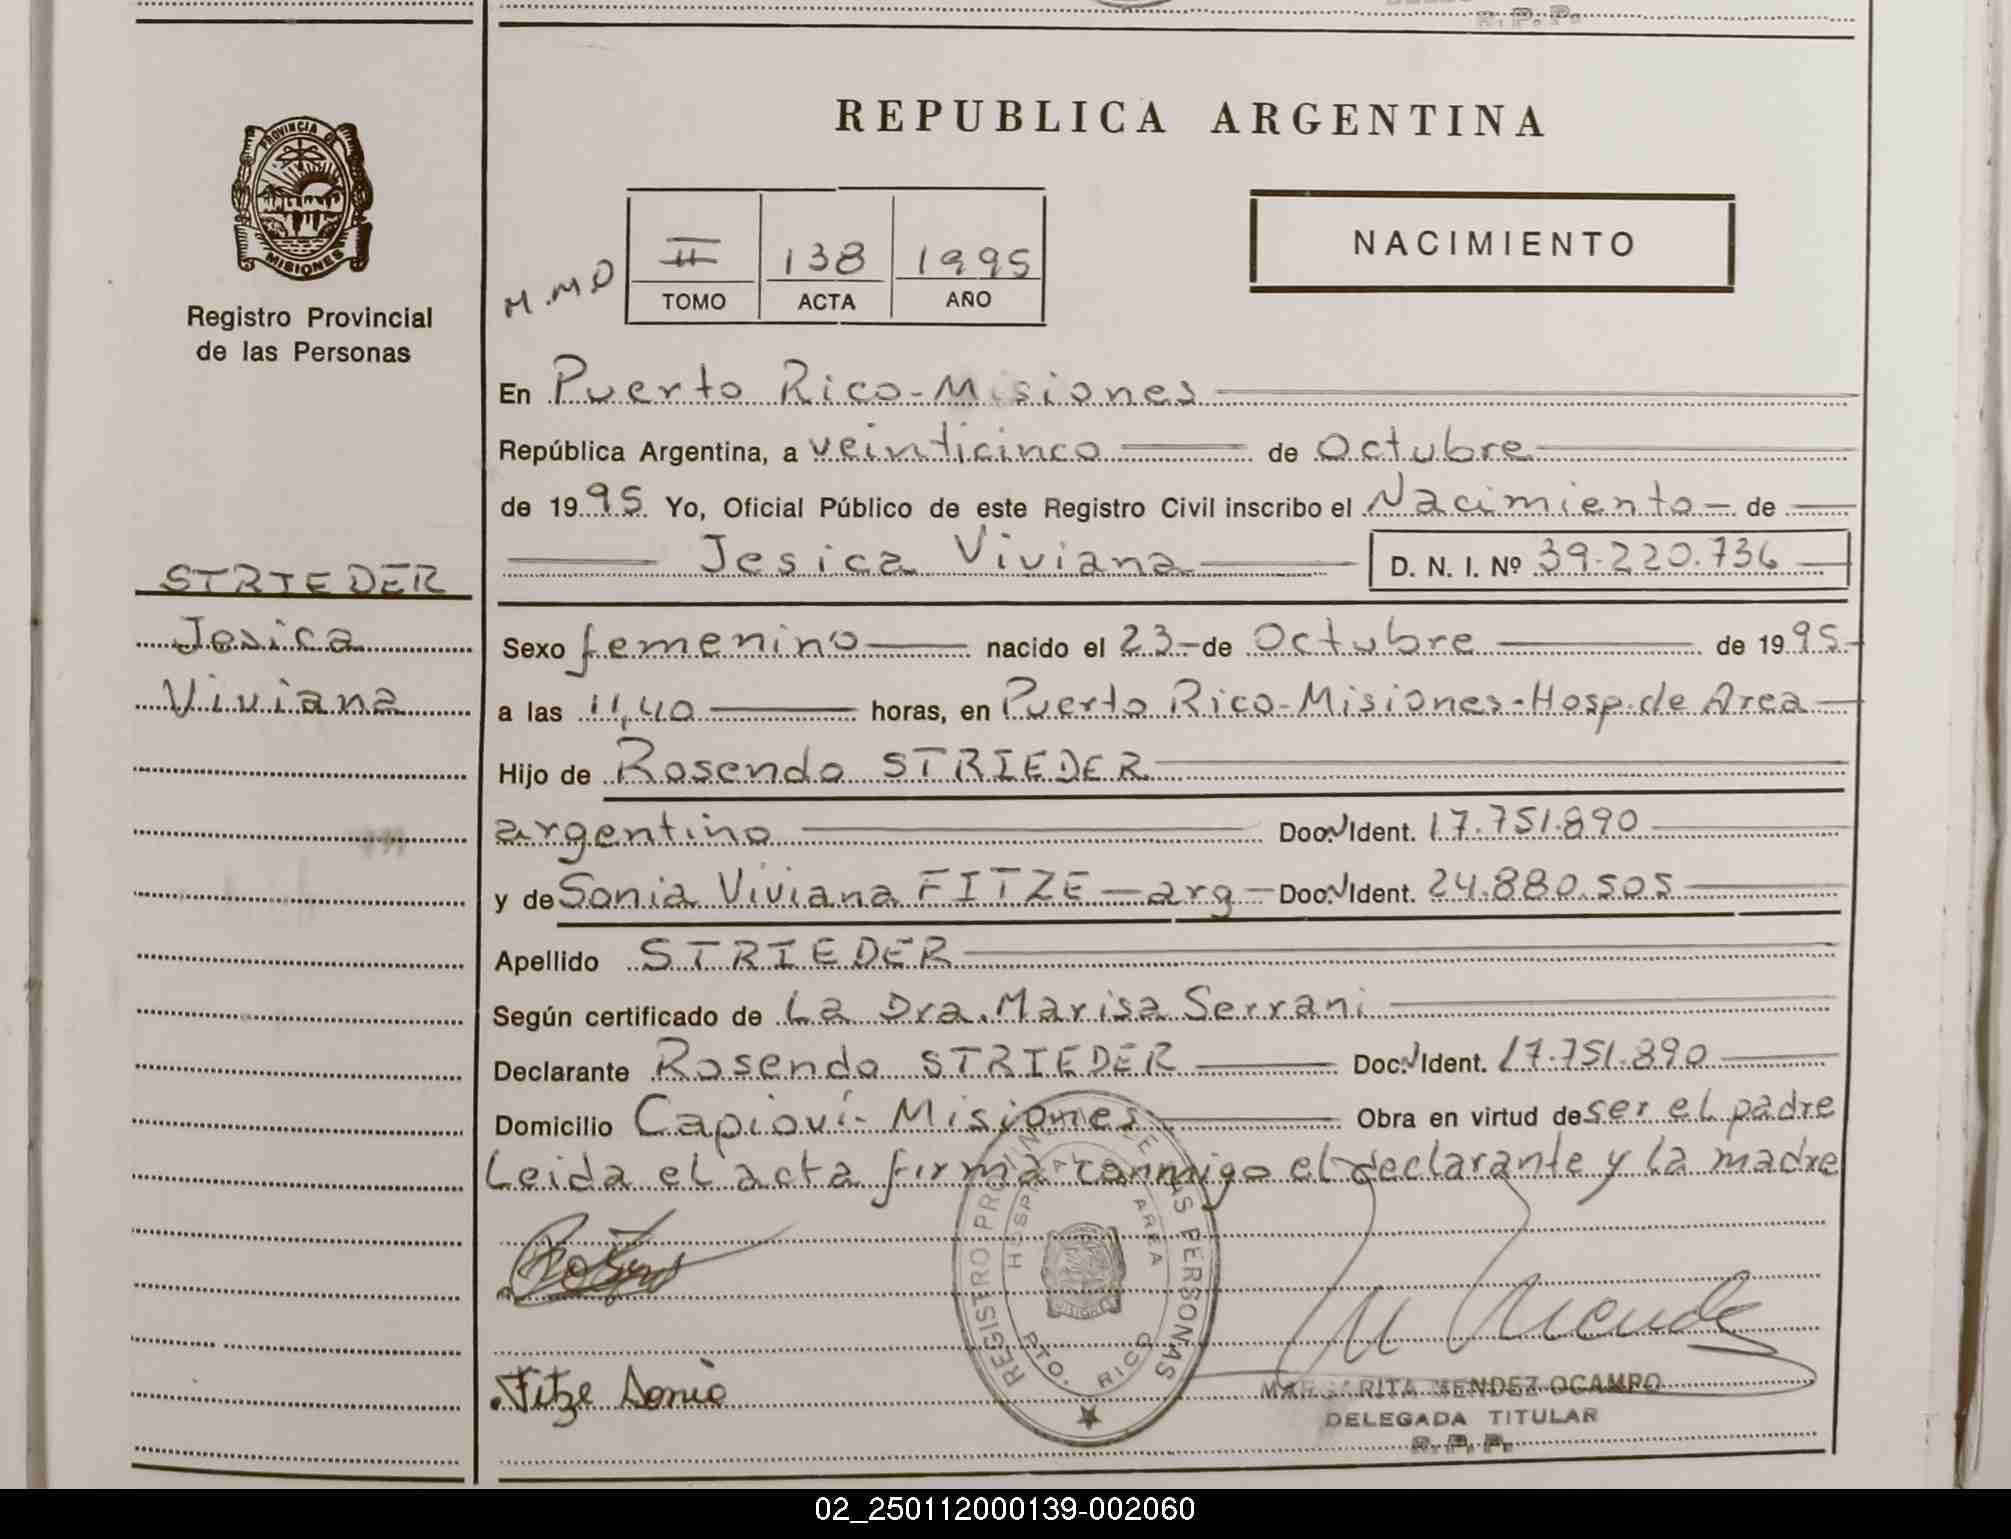 R.P.P.
REPUBLICA ARGENTINA
PROVINCIA DE
MISIONES
Registro Provincial
de las Personas
M.M.O
II 138 1995
TOMO ACTA AÑO
NACIMIENTO
En Puerto Rico-Misiones
República Argentina, a veinticinco de Octubre
de 1995 Yo, Oficial Público de este Registro Civil inscribo el Nacimiento - de
Jesica Viviana D. N. I. Nº 39.220.736
STRIEDER
Jesica
Viviana
Sexo femenino nacido el 23-de Octubre de 1995-
a las 11,40 horas, en Puerto Rico-Misiones-Hosp.de Area
Hijo de Rosendo STRIEDER
argentino Doc.N Ident. 17.751.890
y de Sonia Viviana FITZE - arg - Doc.N Ident. 24.880.505
Apellido STRIEDER
Según certificado de La Dra. Marisa Serrani
Declarante Rosendo STRIEDER Doc.N Ident. 17.751.890
Domicilio Capioví- Misiones Obra en virtud de ser el padre
Leida el acta firma conmigo el declarante y la madre
REGISTRO PROVINCIAL DE LAS PERSONAS
HOSPITAL AREA
PTO. RICO
Fitze Sonia
M Mendez
MARGARITA MENDEZ OCAMPO
DELEGADA TITULAR
R.P.P.
02_250112000139-002060